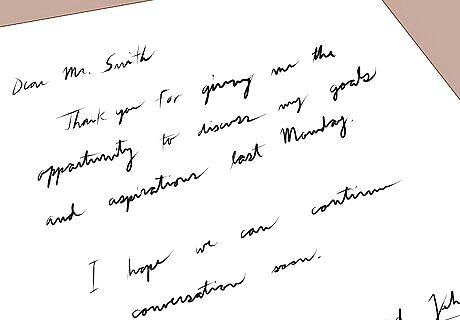 Dear Mr. Smith
Thank you for giving me the
opportunity to discuss my goals
and aspirations last Monday.
I hope we can continue
conversation soon.